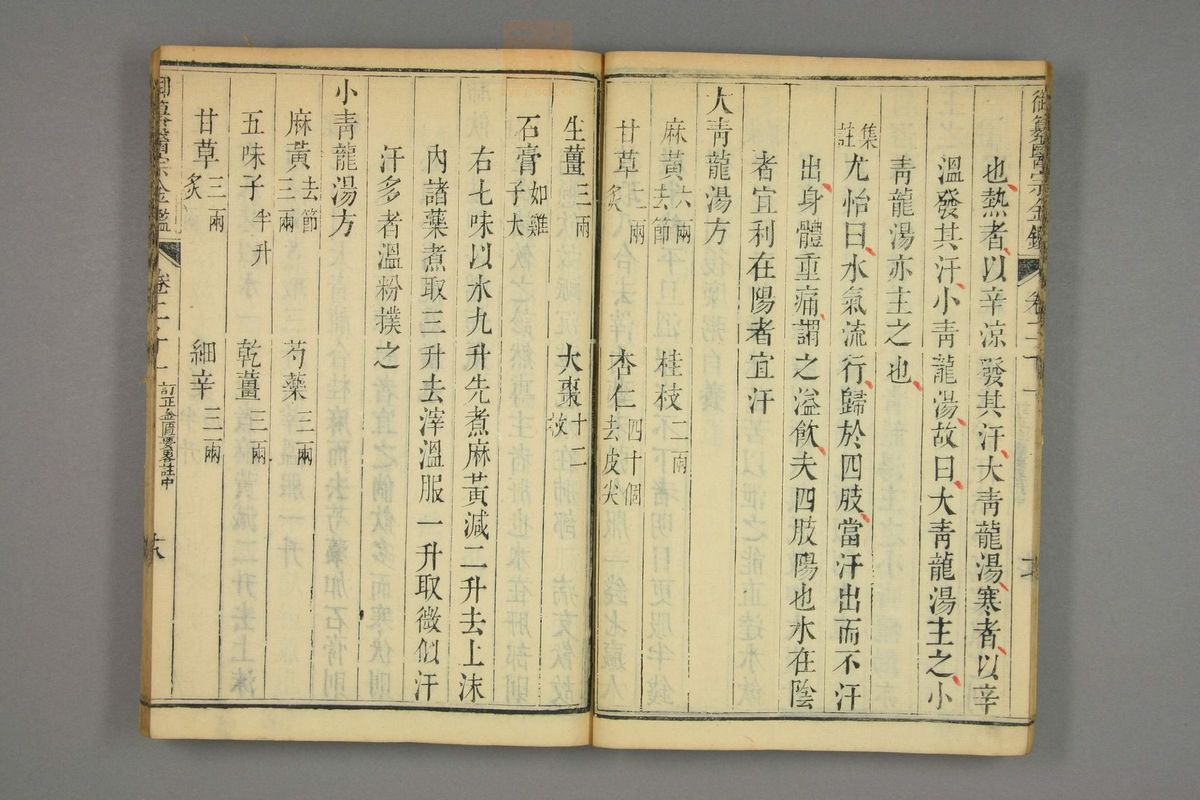 御纂醫宗金鑑
卷二十一
也熱者以辛凉發其汗大青龍湯寒者以辛
溫發其汗小青龍湯故曰大青龍湯主之小
青龍湯亦主之也
集註
尤怡曰水氣流行歸於四肢當汗出而不汗
出身體重痛謂之溢飲夫四肢陽也水在陰
者宜利在陽者宜汗
大青龍湯方
麻黃六兩去節 桂枝二兩
甘草二兩炙 杏仁四十個去皮尖
生薑三兩 大棗十二枚
石膏如雞子大
右七味以水九升先煮麻黃減二升去上沫
內諸藥煮取三升去滓溫服一升取微似汗
汗多者溫粉撲之
小青龍湯方
麻黃去節三兩 芍藥三兩
五味子半升 乾薑三兩
甘草三兩炙 細辛三兩
御纂醫宗金鑑
訂正金匱要畧註中